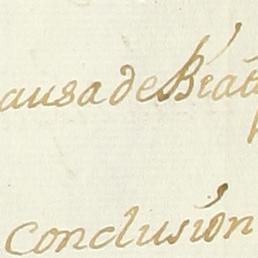 ausa de Beat
Conclusión